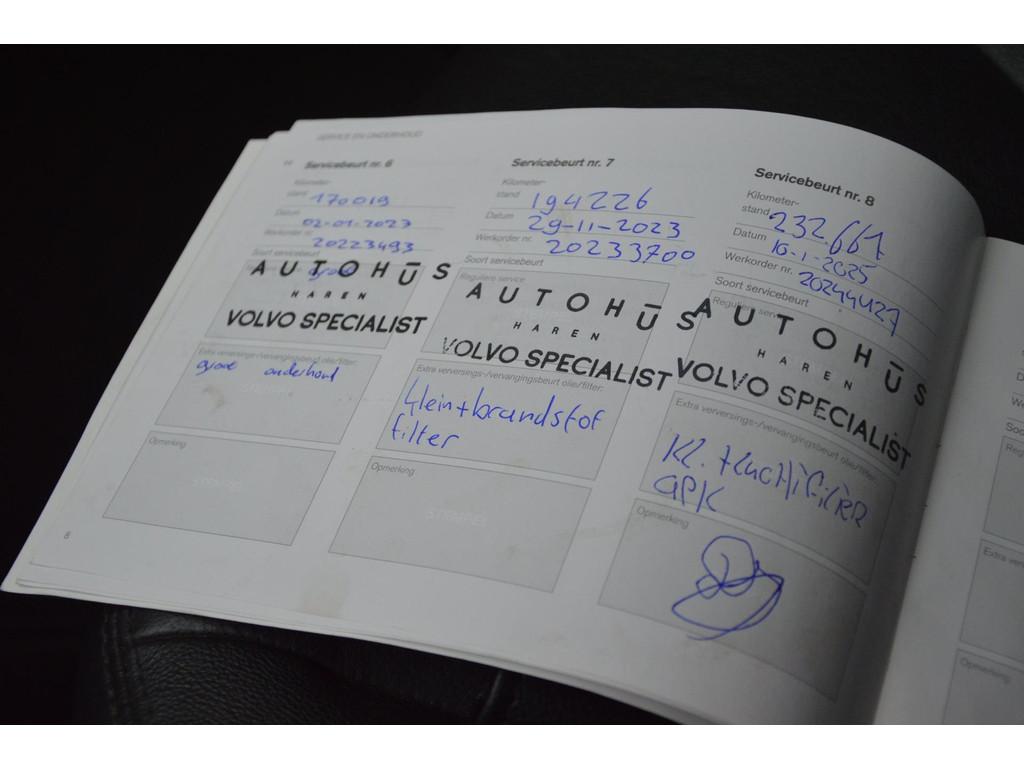 SERVICE EN ONDERHOUD
Servicebeurt nr. 6
Kilometer-
stand 170019
Datum 02-01-2023
Werkorder nr. 20223493
Soort servicebeurt
AUTOHŪS
HAREN
VOLVO SPECIALIST
Extra verversings-/vervangingsbeurt olie/filter:
grote onderhoud
Opmerking
STEMPEL
8
Servicebeurt nr. 7
Kilometer-
stand 194226
Datum 29-11-2023
Werkorder nr. 20233700
Soort servicebeurt
Reguliere service
AUTOHŪS
HAREN
VOLVO SPECIALIST
Extra verversings-/vervangingsbeurt olie/filter:
klein+brandstof
filter
Opmerking
STEMPEL
Servicebeurt nr. 8
Kilometer-
stand 232.661
Datum 16-1-2025
Werkorder nr. 20244427
Soort servicebeurt
Reguliere service
AUTOHŪS
HAREN
VOLVO SPECIALIST
Extra verversings-/vervangingsbeurt olie/filter:
Kl. + luchtfilter
APK
Opmerking
Extra
Opmerking